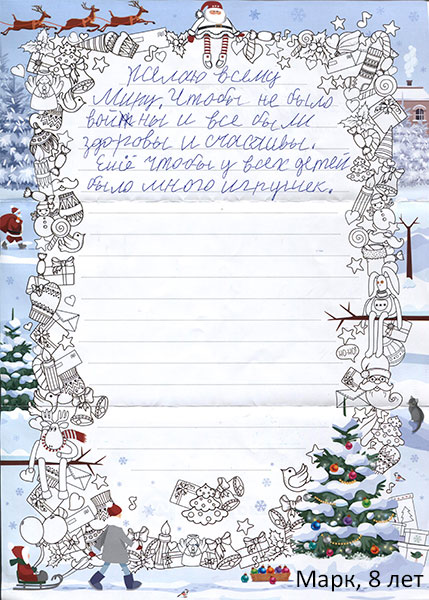 Желаю всему
Миру, Чтобы не было
войны и все были
здоровы и счасливы.
Ещё чтобы у всех детей
было много игрушек.
HO-HO!
Марк, 8 лет